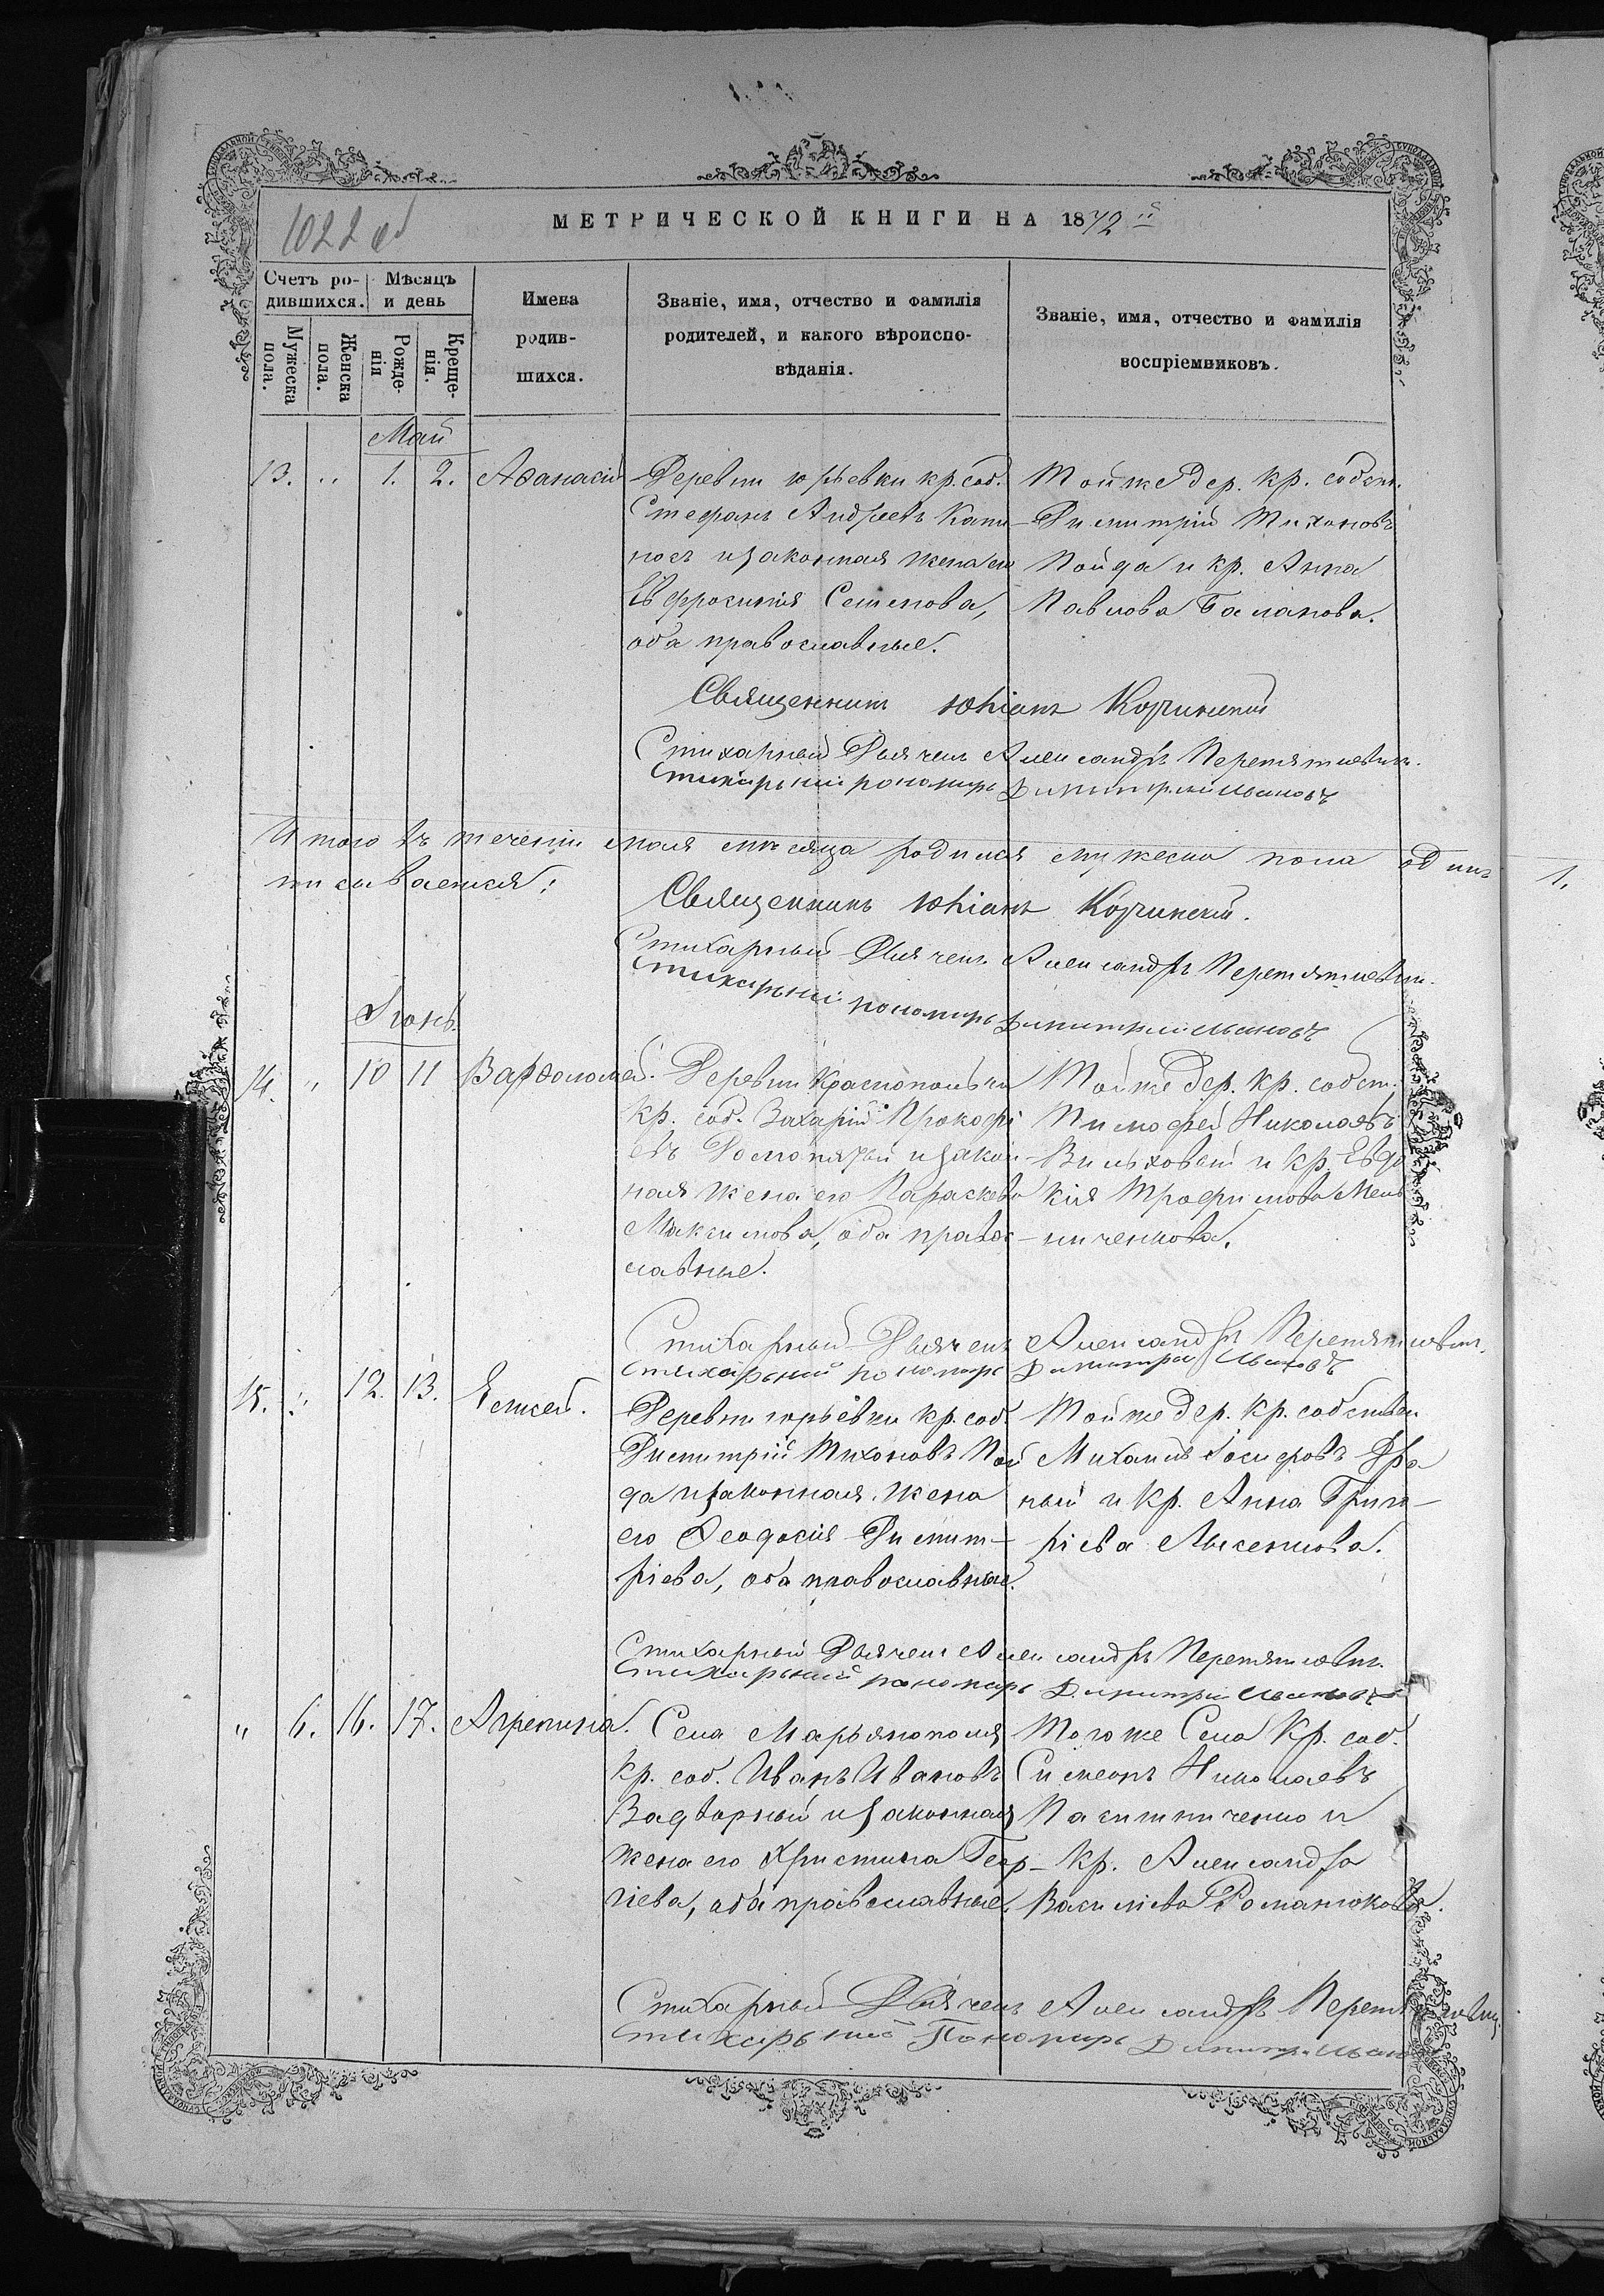 1022 об
МЕТРИЧЕСКОЙ КНИГИ НА 1872й
Счетъ ро-
дившихся.
Мѣсяцъ
и день
Имена
родив-
шихся.
Званіе, имя, отчество и фамилія
родителей, и какого вѣроиспо-
вѣданія.
Званіе, имя, отчество и фамилія
воспріемниковъ.
Мужеска
пола.
Женска
пола.
Рожде-
нія
Креще-
нія.
Май
13. „ 1. 2. Аѳанасій
Деревни Юрьевки кр. соб.
Стефанъ Андреевъ Капи-
носъ и законная жена его
Евфросинія Семенова,
оба православные.
Тойже дер. кр. собств.
Димитрій Тихоновъ
Пойда и кр. Анна
Павлова Баланова.
Священникъ Юліанъ
Стихарный Дьячекъ Александръ
Стихарный пономарь Димитрій
Итого въ теченіи мая мѣсяца родился мужеска пола одинъ 1.
Священникъ Юліанъ
Стихарный Дьячекъ Александръ
Стихарный пономарь Димитрій
Іюнь
14. „ 10 11 Варѳоломей.
Деревни Краснопольки
кр. соб. Захарій Прокофі
евъ и закон-
ная жена его Параскева
Максимова, оба правос-
лавные.
Тойже дер. кр. собст.
Николаевъ
Вильховый и кр. Евдо
кія Трофимова Мель
ниченкова.
Стихарный Дьячекъ Александръ
Стихарный пономарь Димитрій
15. „ 12. 13. Елисей.
Деревни Юрьевки кр. соб.
Димитрій Тихоновъ Пой
да и законная жена
его Ѳеодосія Димит-
ріева, оба православные.
Тойже дер. кр. собствен
Михаилъ Іосифовъ
и кр. Анна Григо-
ріева Лысенкова.
Стихарный Дьячекъ Александръ
Стихарный пономарь Димитрій
„ 6. 16. 17. Агрепина.
Села Марьянополя
кр. соб. Иванъ Ивановъ
Задворный и законная
жена его Христина Геор-
гіева, оба православные.
Тогоже Села Кр. соб.
Симеонъ Николаевъ
и
кр. Александра
Василіева Романюкова.
Стихарный Дьячекъ Александръ
Стихарный Пономарь Димитрій